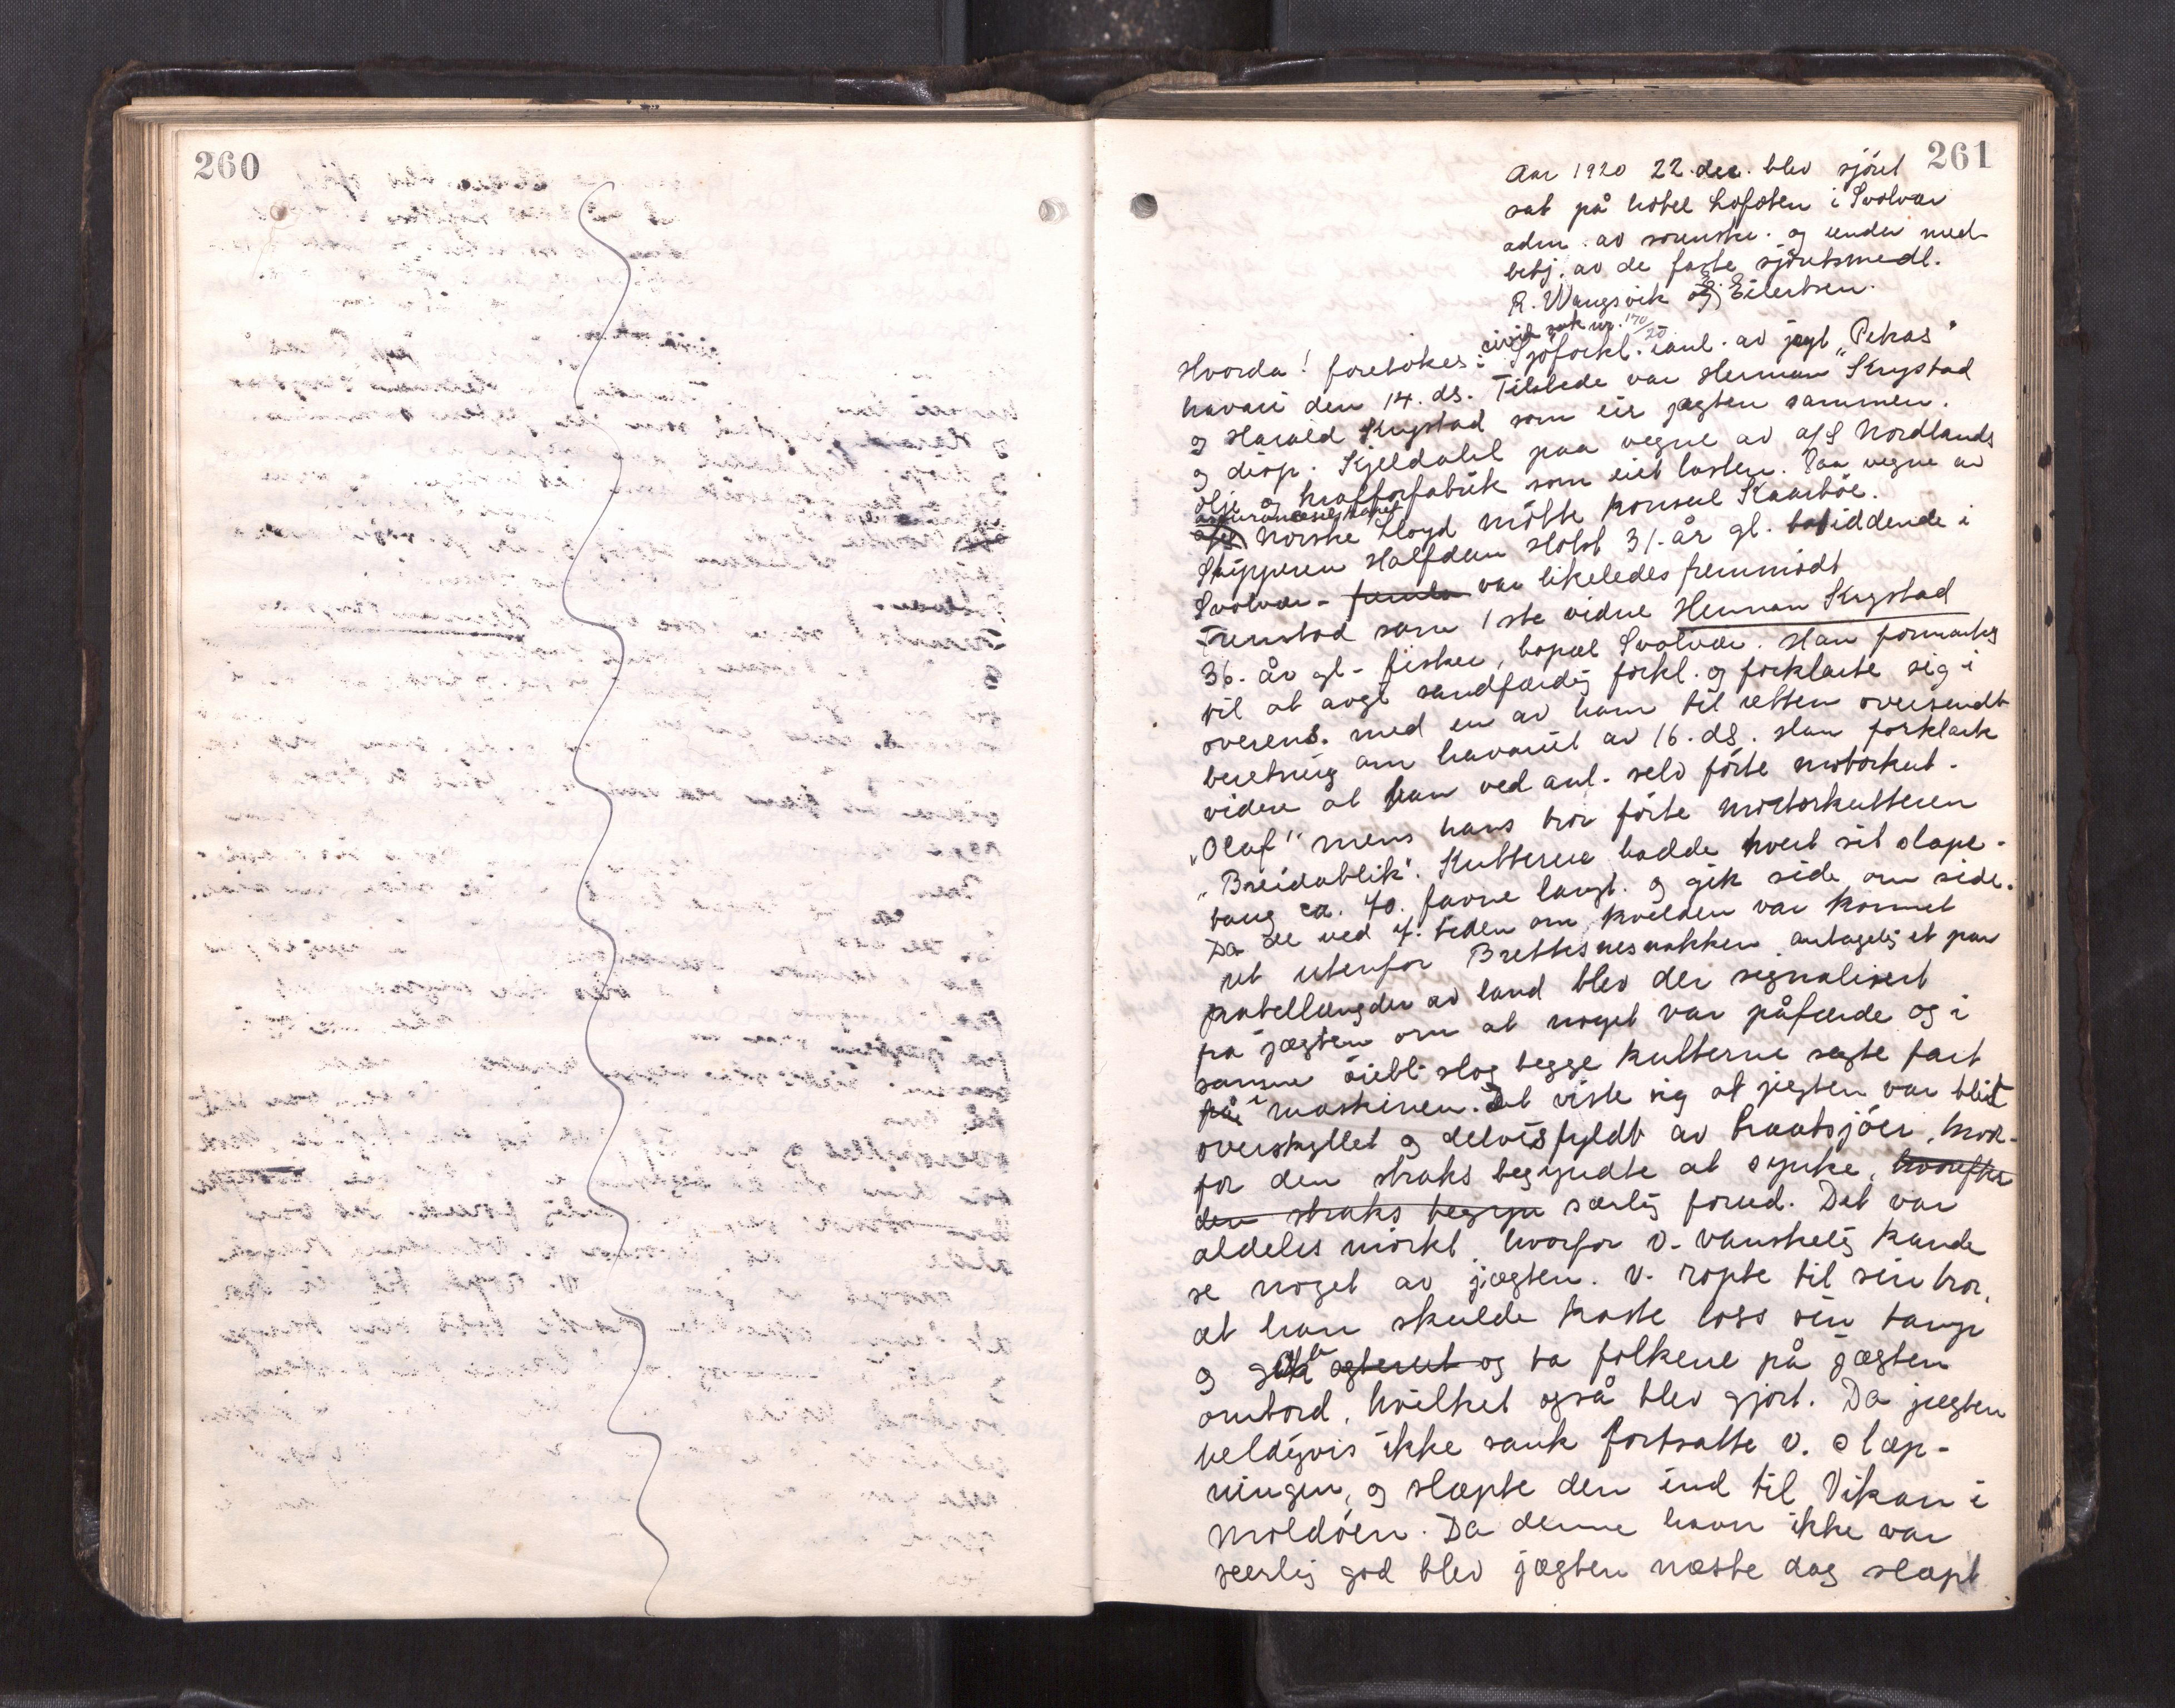 260
261
Aar 1920 22. dec. blev sjöret
sat på hotel Lofoten i Svolvær
adm. av sorenskr. og under med-
betj. av de faste sjöretsmedl.
R. Wangsvik og E. Eilertsen.
civil sak nr. 170/20
Hvorda! foretokes: Sjöforkl. i anl. av jagt "Pekas"
havari den 14. ds. Tilstede var Herman Krystad
og Harald Krystad som eier jagten sammen.
og disp. Kjeldahl paa vegne av A/S Nordlands
olje og kraftforfabrik som eiet lasten. Paa vegne av
assuranceselskapet
a/s Norske Lloyd mötte konsul Kaarböe.
Skipperen Halfdan Holst 31. år gl. bosiddende i
Svolvær - var likeledes fremmödt
Fremstod som 1ste vidne Herman Krystad
36. år gl. - fisker, bopæl Svolvær. Han formantes
til at avgi sandfærdig forkl. og forklarte sig i
overens. med en av ham til retten oversendt
beretning om havariet av 16. ds. Han forklarte
videre at han ved anl. selv förte motorkut.
"Olaf" mens hans bror förte motorkutteren
"Breidablik". Kutterne hadde hvert sit slæpe-
taug ca. 70. favne langt. og gik side om side.
Da de ved 7. tiden om kvelden var kommet
ut utenfor Brettesnesnakken antagelig et par
kabellængder av land blev der signalisert
fra jagten om at noget var påfærde og i
samme öiebl. slog begge kutterne sagte fart
på i maskinen. Det viste sig at jegten var blit
overskyllet og delvis fyldt av braatsjöer, hvor-
for den straks begyndte at synke, hvorefter
den straks begyn særlig forud. Det var
aldeles mörkt, hvorfor v. vanskelig kunde
se noget av jægten. v. ropte til sin bror,
at han skulde kaste loss sin taug
og gå agterut og ta folkene på jægten
ombord, hvilket også blev gjort. Da jægten
heldigvis ikke sank fortsatte v. slæp-
ningen, og slæpte den ind til Vikan i
Moldöen. Da denne havn ikke var
særlig god blev jægten næste dag slæpt